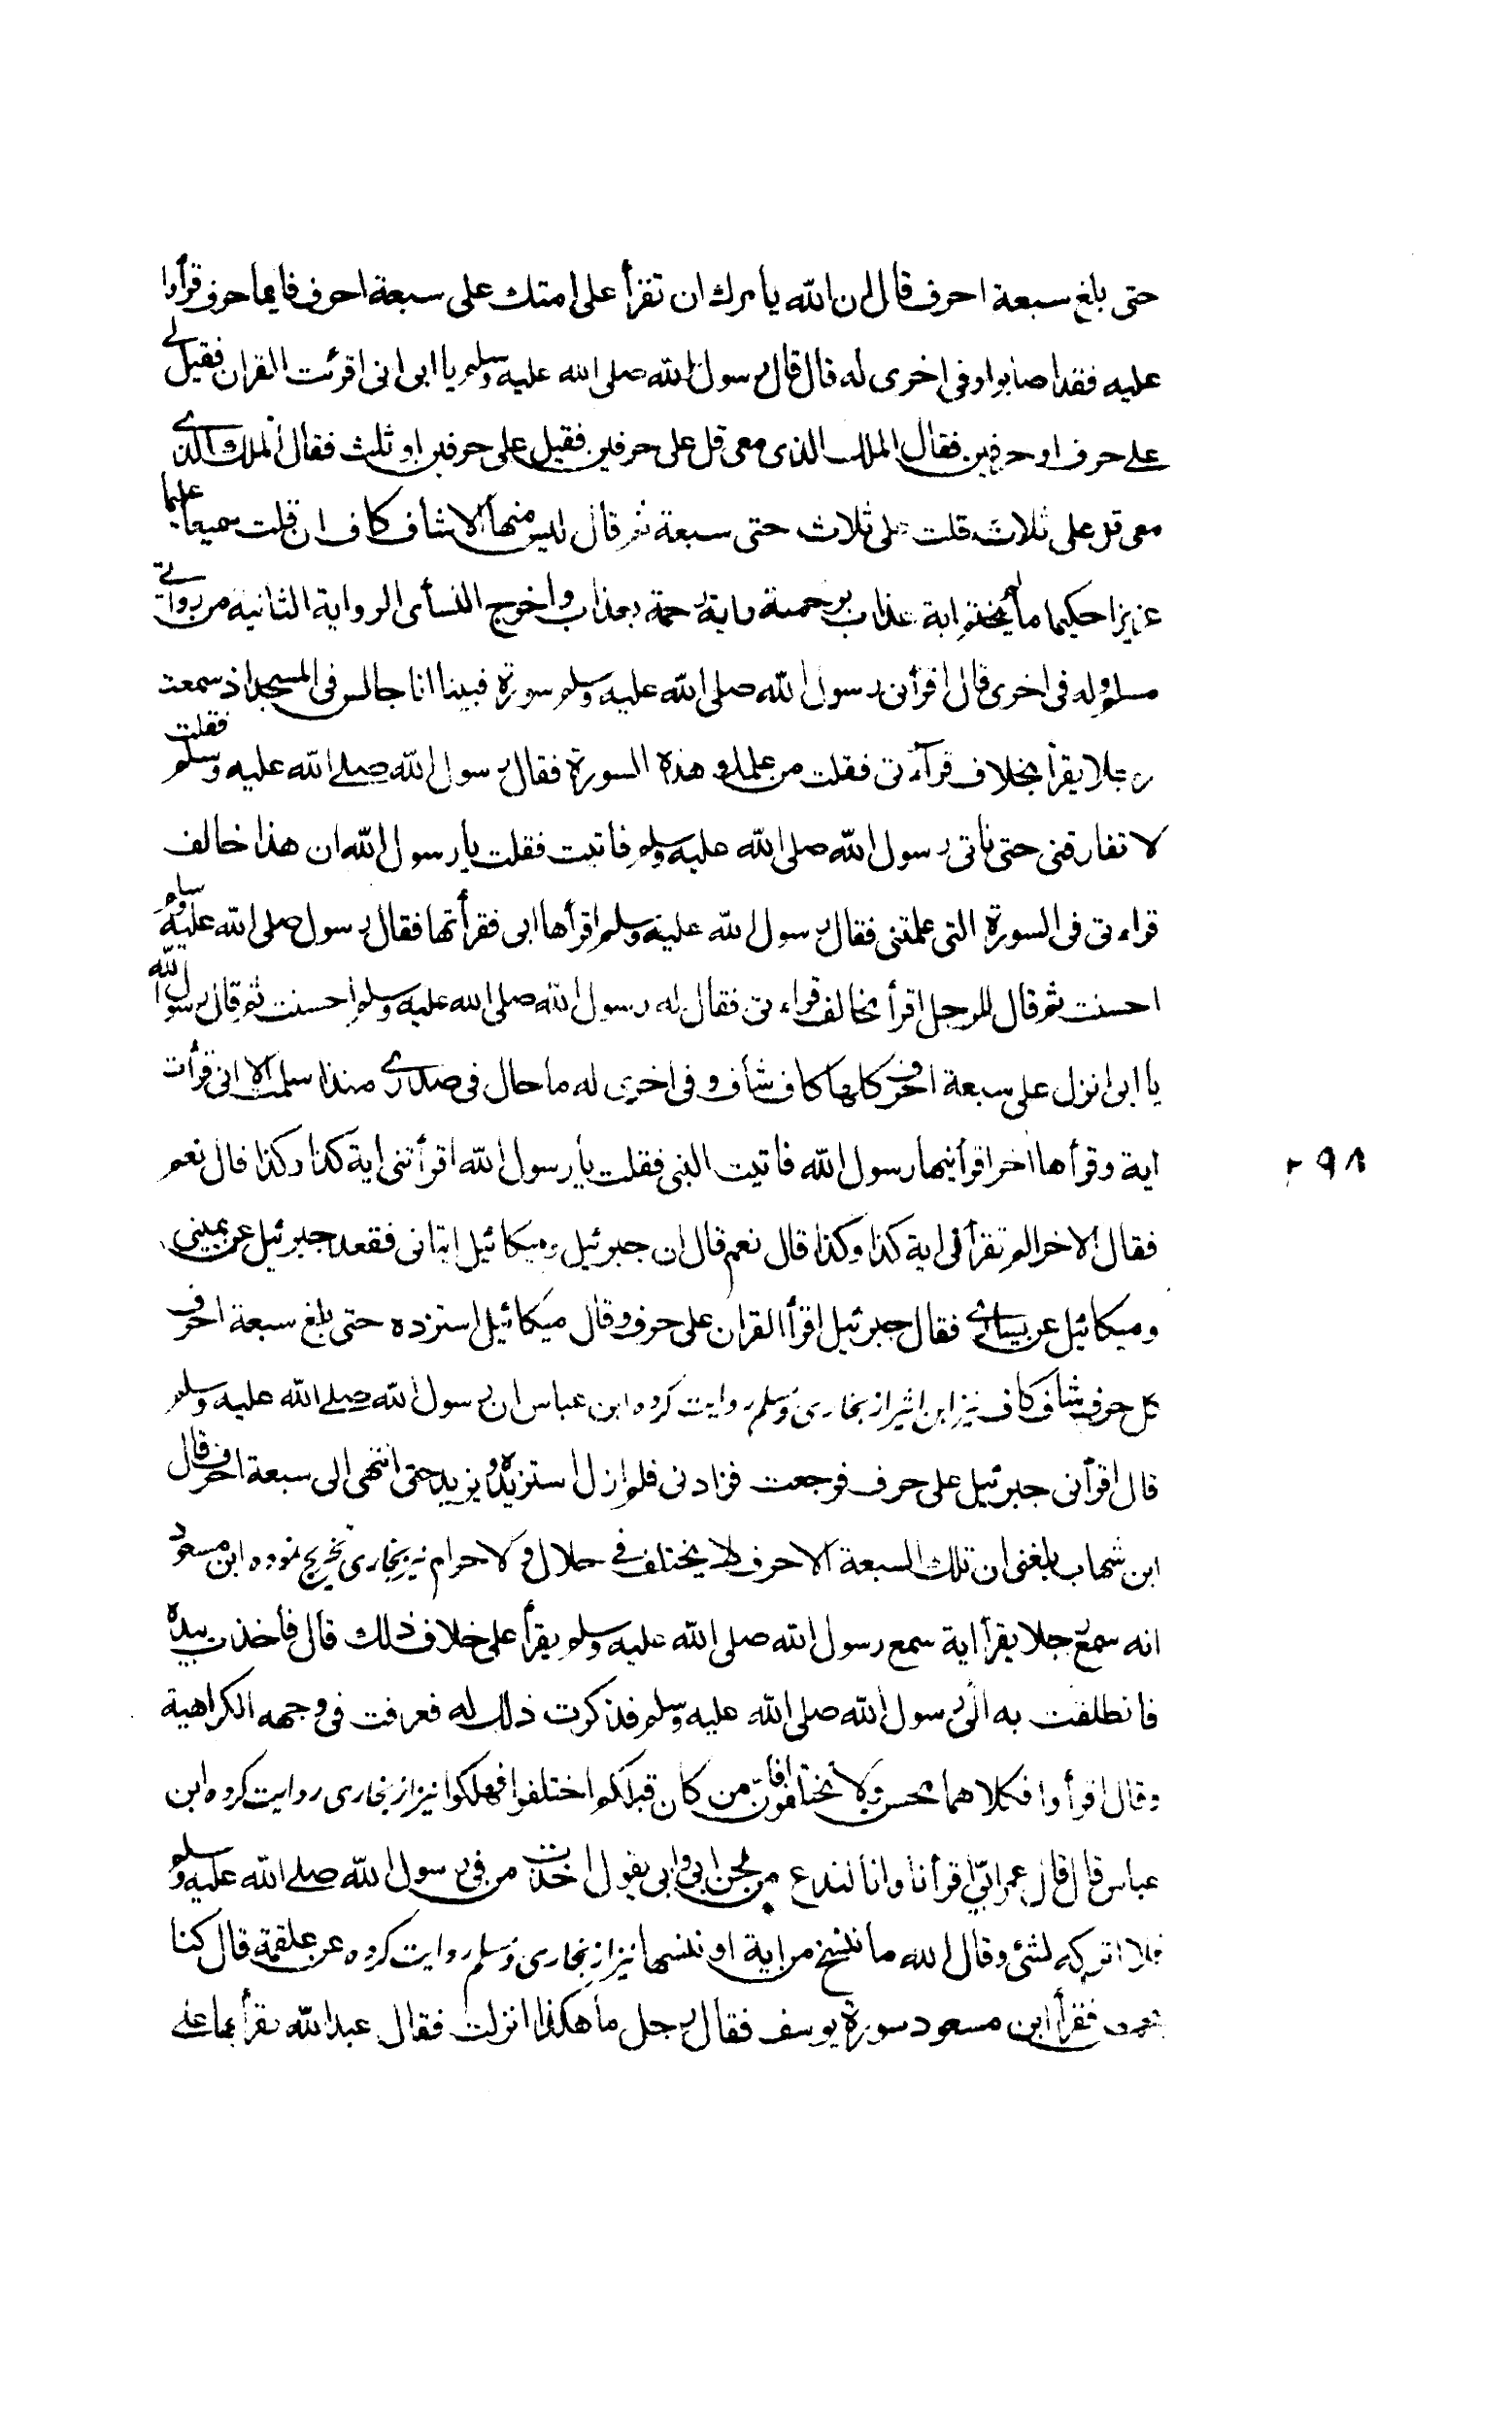 حتى بلغ سبعة احرف قال ان الله يأمرك ان تقرأ على امتك على سبعة احرف فايما حرف قرأوا
عليه فقد اصابوا وفى اخرى له قال قال رسول الله صلى الله عليه وسلم يا ابى انى اقرئت القران فقيل لے
علے حرف او حرفين فقال الملك الذى معى قل على حرفين فقيل على حرفين او ثلث فقال الملك الذے
معى قل على ثلاث قلت على ثلاث حتى سبعة ثم قال ليس منها الا شاف كاف ان قلت سميعا عليما
عزيزا حكيما ما لم يختم اية عذاب برحمة واية رحمة بعذاب واخرج النسأى الرواية الثانية من روايتے
مسلم وله فى اخرى قال اقرأنى رسول الله صلى الله عليه وسلم سورة فبينا انا جالس فى المسجد اذ سمعت
رجلا يقرأ بخلاف قرآءتى فقلت من علمك هذه السورة فقال رسول الله صلے الله عليه وسلم فقلت
لا تفارقنى حتى ناتى رسول الله صلى الله عليه وسلم فاتيت فقلت يا رسول الله ان هذا خالف
قراءتى فى السورة التى علمتنى فقال رسول الله عليه وسلم اقرأها ابى فقرأتها فقال رسول صلى الله عليه وسلم
احسنت ثم قال للرجل اقرأ بخالف قراءتى فقال له رسول الله صلى الله عليه وسلم احسنت ثم قال رسول الله
يا ابى انزل على سبعة احرف كلها كاف شاف وفى اخرى له ما حال فى صدرے منذ اسلمت الا انى قرأت
اية وقرأها اخر اقرأنيها رسول الله فاتيت النبى فقلت يا رسول الله اقرأتنى اية كذا وكذا قال نعم
۲۹۸
فقال الاخر الم تقرأنى اية كذا وكذا قال نعم قال ان جبرئيل وميكائيل اتيانى فقعد جبرئيل عن يمينى
وميكائيل عن يسارے فقال جبرئيل اقرأ القران على حرف وقال ميكائيل استزده حتى بلغ سبعة احرف
كل حرف شاف كاف نيز ابن اثير از بخارى ومسلم روايت كرده ابن عباس ان رسول الله صلے الله عليه وسلم
قال اقرأنى جبرئيل على حرف فرجعت فزادنى فلم ازل استزيده ويزيد حتى انتهى الى سبعة احرف قال
ابن شهاب بلغنى ان تلك السبعة الاحرف لا يختلف فے حلال ولا حرام نيز بخارى تخريج نموده ابن مسعود
انه سمع رجلا يقرأ اية سمع رسول الله صلى الله عليه وسلم يقرأ على خلاف ذلك قال فأخذت بيده
فانطلقت به الى رسول الله صلى الله عليه وسلم فذكرت ذلك له فعرفت فى وجهه الكراهية
وقال اقرأوا فكلاهما محسن ولا تختلفوا فان من كان قبلكم اختلفوا فهلكوا نيز از بخارى روايت كرده ابن
عباس قال قال عمر ابىّ اقرأنا وانا لندع من لحن ابى وابى يقول اخذت من فى رسول الله صلے الله عليه وسلم
فلا اتركه لشئ وقال الله ما ننسخ من اية او ننسها نيز از بخارى ومسلم روايت كرده عن علقمة قال كنا
بحمص فقرأ ابن مسعود سورة يوسف فقال رجل ما هكذا انزلت فقال عبد الله نقرأ بها علے